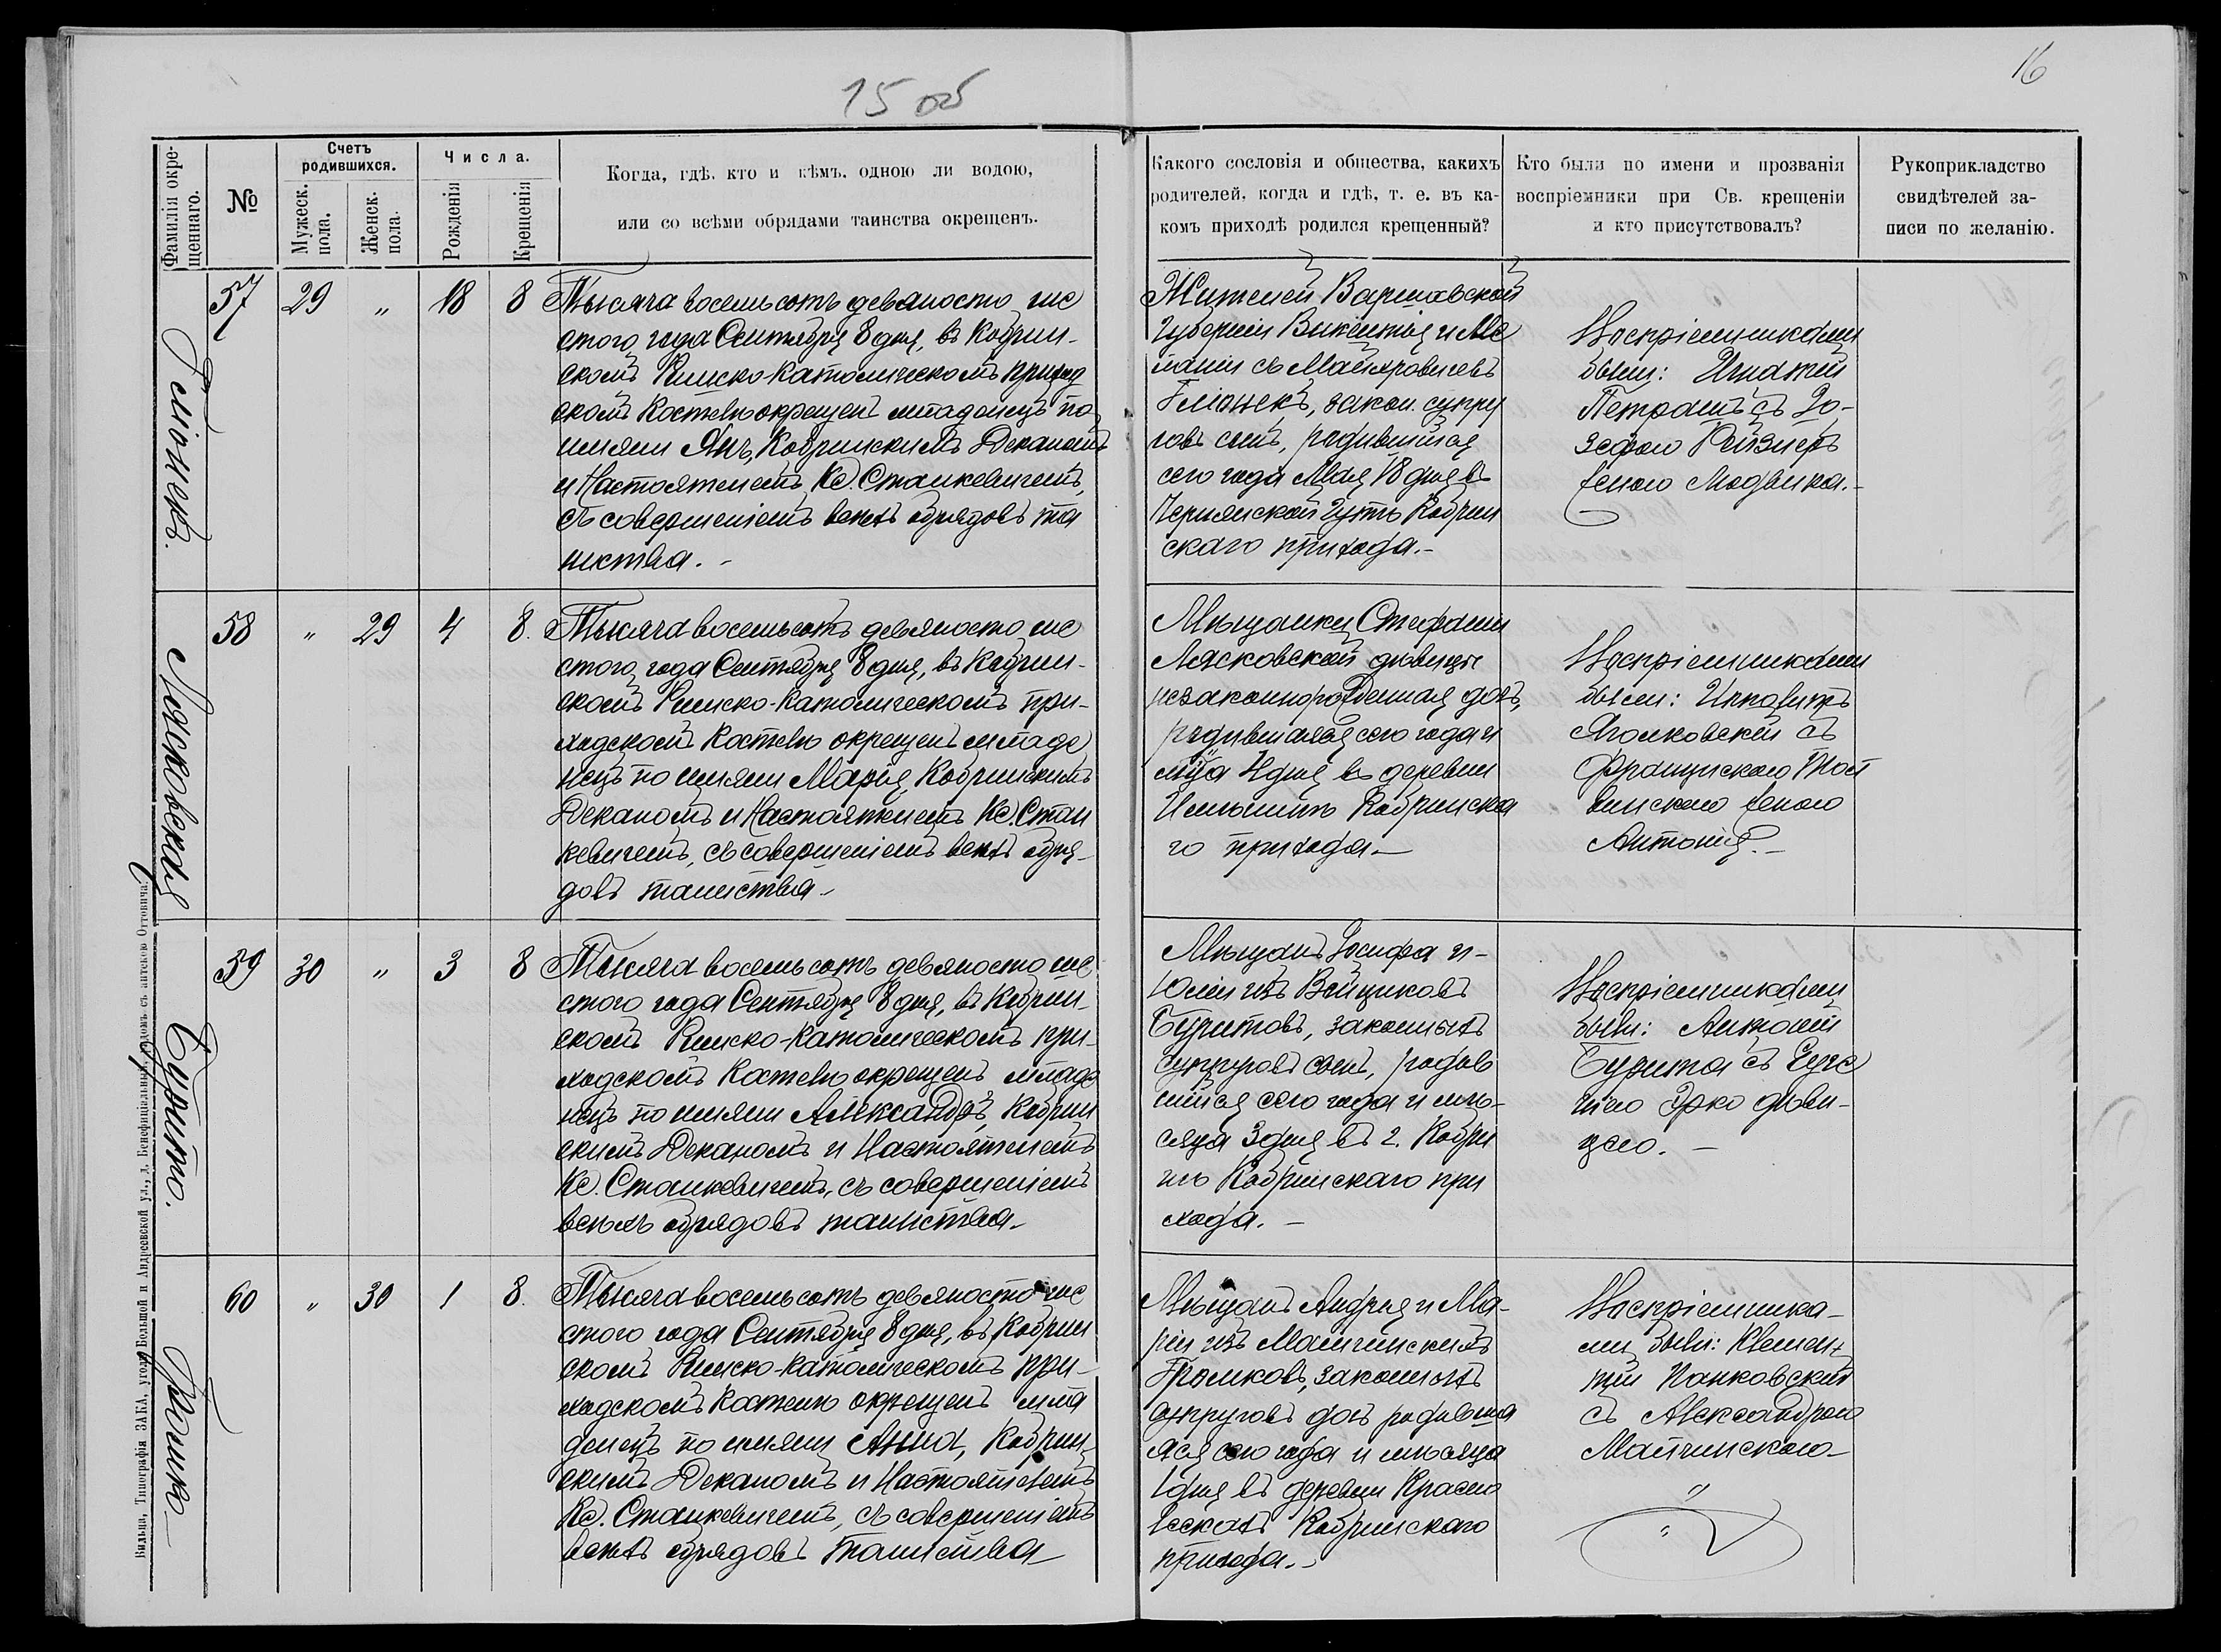 15 об
16
Фамилія окре-
щеннаго.
№
Счетъ
родившихся.
Мужеск.
пола.
Женск.
пола.
Числа.
Рожденія
Крещенія
Когда, гдѣ, кто и кѣмъ, одною ли водою,
или со всѣми обрядами таинства окрещенъ.
Какого сословія и общества, какихъ
родителей, когда и гдѣ, т. е. въ ка-
комъ приходѣ родился крещенный?
Кто были по имени и прозванія
воспріемники при Св. крещеніи
и кто присутствовалъ?
Рукоприкладство
свидѣтелей за-
писи по желанію.
Гліонекъ.
57 29 " 18 8
Тысяча восемьсотъ девяносто ше
стого года Сентября 8 дня, въ Кобрин-
скомъ Римско-Католическомъ приход
скомъ Костелѣ окрещенъ младенецъ по
имени Янъ, Кобринскимъ Деканомъ
и Настоятелемъ Кс. Станкевичемъ,
съ совершеніемъ всѣхъ обрядовъ та
инства. -
Жителей Варшавской
Губерніи Викентія и Ме
ланіи съ
Гліонекъ, закон. супру
говъ сынъ, родившійся
сего года Мая 18 дня въ
Чернянской Гутѣ Кобрин
скаго прихода.-
Воспріемниками
были: Игнатій
съ Іо-
зефою
женою
Лясковская
58 " 29 4 8.
Тысяча восемьсотъ девяносто ше
стого года Сентября 8 дня, въ Кобрин-
скомъ Римско-Католическомъ при-
ходскомъ Костелѣ окрещенъ младе
нецъ по имени Марія, Кобринскимъ
Деканомъ и Настоятелемъ Кс. Стан
кевичемъ, съ совершеніемъ всѣхъ обря-
довъ таинства.-
Мѣщанки Стефаніи
Лясковской дѣвицы
незаконнорожденная дочь,
родившаяся сего года и
м-ца 4 дня въ деревни
Кобринска
го прихода.-
Воспріемниками
были: Ипполитъ
съ
Францискою
женою
Антонія.-
Бурито.
59 30 " 3 8
Тысяча восемьсотъ девяносто ше
стого года Сентября 8 дня, въ Кобрин-
скомъ Римско-Католическомъ при-
ходскомъ Костелѣ окрещенъ младе
нецъ по имени Александръ, Кобрин
скимъ Деканомъ и Настоятелемъ
Кс. Станкевичемъ, съ совершеніемъ
всѣхъ обрядовъ таинства.-
Мѣщанъ Іосифа и-
Юліи изъ Войциковъ
Буритовъ, законныхъ
супруговъ сынъ, родив
шійся сего года и мѣ-
сяца 3 дня въ г. Кобри
нѣ Кобринскаго при
хода. -
Воспріемниками
были: Антоній
Бурита съ Евге
ніею дѣви-
цею. -
Громко-
60 " 30 1 8.
Тысяча восемьсотъ девяносто ше
стого года Сентября 8 дня, въ Кобрин
скомъ Римско-Католическомъ при-
ходскомъ Костелѣ окрещенъ мла
денецъ по имени Анна, Кобрин-
скимъ Деканомъ и Настоятелемъ
Кс. Станкевичемъ, съ совершеніемъ
всѣхъ обрядовъ таинства-
Мѣщанъ Андрея и Ма-
ріи изъ Майчинскихъ
Громковъ, законныхъ
супруговъ дочь родивша
яся сего года и мѣсяца
1 дня въ деревни
Кобринскаго
прихода.-
Воспріемника-
ми были: Клемен
тій Панковскій
съ Александрою
Майчинскою-
Вильна, Типографія ЗАКА, уголъ Большой и Андреевской ул., д. Бенефиціальный, рядомъ съ аптекою Оттовича.